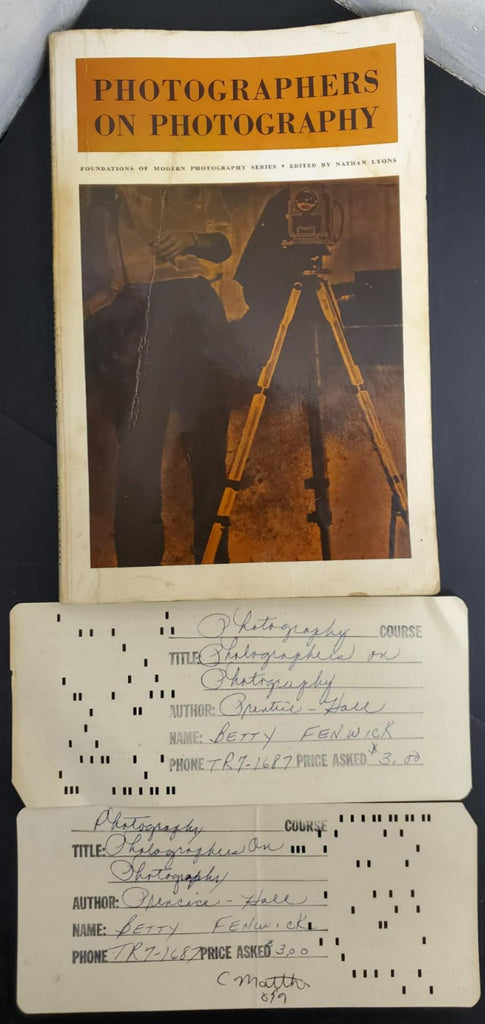 PHOTOGRAPHERS
ON PHOTOGRAPHY
FOUNDATIONS OF MODERN PHOTOGRAPHY SERIES • EDITED BY NATHAN LYONS
Photography COURSE
TITLE: Photographers on
Photography
AUTHOR: Prentice-Hall
NAME: BETTY FENWICK
PHONE TR7-1687 PRICE ASKED $3.00
Photography COURSE
TITLE: Photographers On
Photography
AUTHOR: Prencice-Hall
NAME: BETTY FENWICK
PHONE TR7-1687 PRICE ASKED $3.00
C Matth